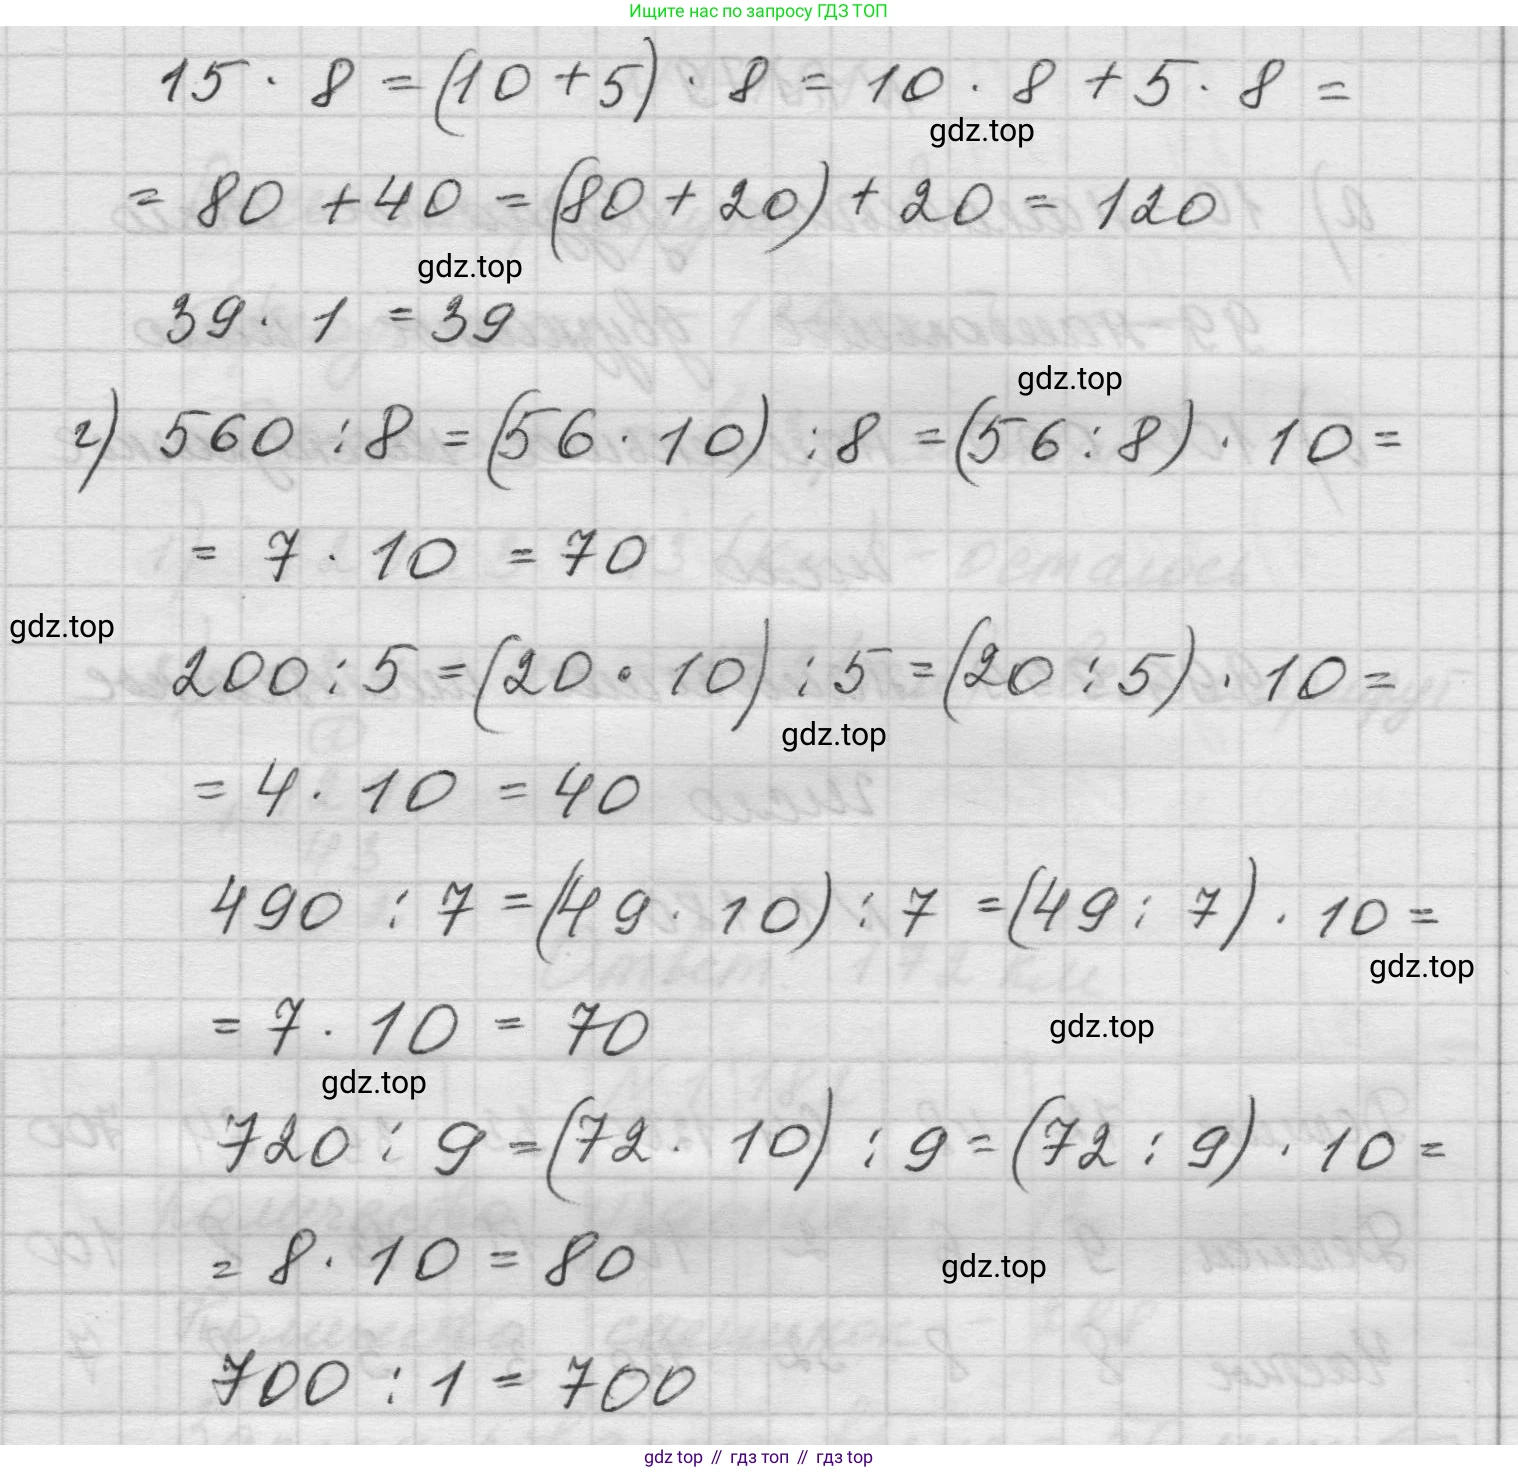 Ищите нас по запросу ГДЗ ТОП
15 · 8 = (10 + 5) · 8 = 10 · 8 + 5 · 8 =
gdz.top
= 80 + 40 = (80 + 20) + 20 = 120
gdz.top
39 · 1 = 39
gdz.top
г) 560 : 8 = (56 · 10) : 8 = (56 : 8) · 10 =
= 7 · 10 = 70
gdz.top
200 : 5 = (20 · 10) : 5 = (20 : 5) · 10 =
gdz.top
= 4 · 10 = 40
490 : 7 = (49 · 10) : 7 = (49 : 7) · 10 =
gdz.top
= 7 · 10 = 70
gdz.top
gdz.top
720 : 9 = (72 · 10) : 9 = (72 : 9) · 10 =
= 8 · 10 = 80
gdz.top
700 : 1 = 700
gdz top // гдз топ // гдз top